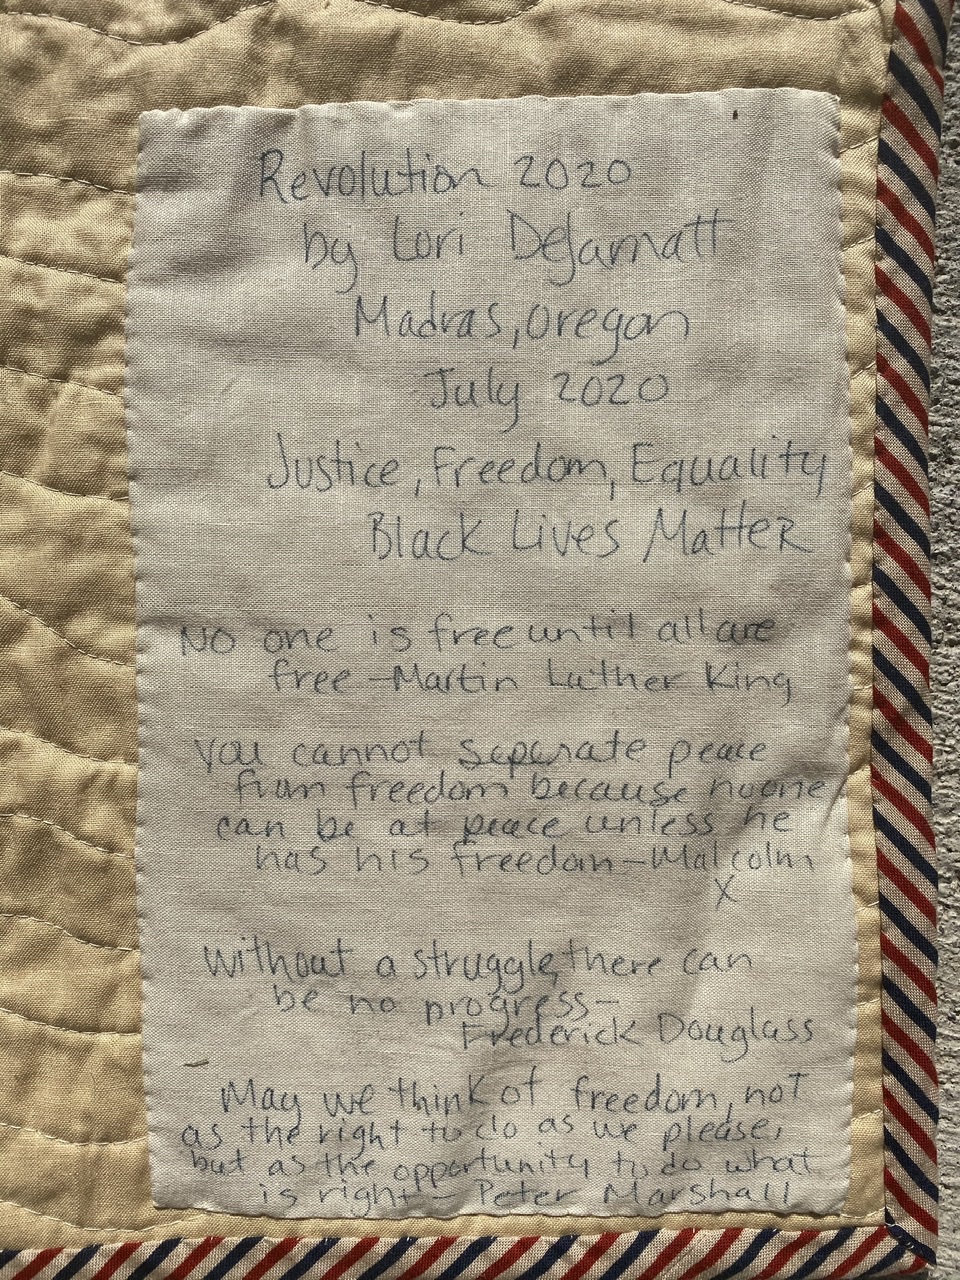 Revolution 2020
by Lori DeJarnatt
Madras, Oregon
July 2020
Justice, Freedom, Equality
Black Lives Matter
No one is free until all are
free - Martin Luther King
You cannot separate peace
from freedom because no one
can be at peace unless he
has his freedom - Malcolm
X
Without a struggle, there can
be no progress -
Frederick Douglass
May we think of freedom, not
as the right to do as we please,
but as the opportunity to do what
is right - Peter Marshall